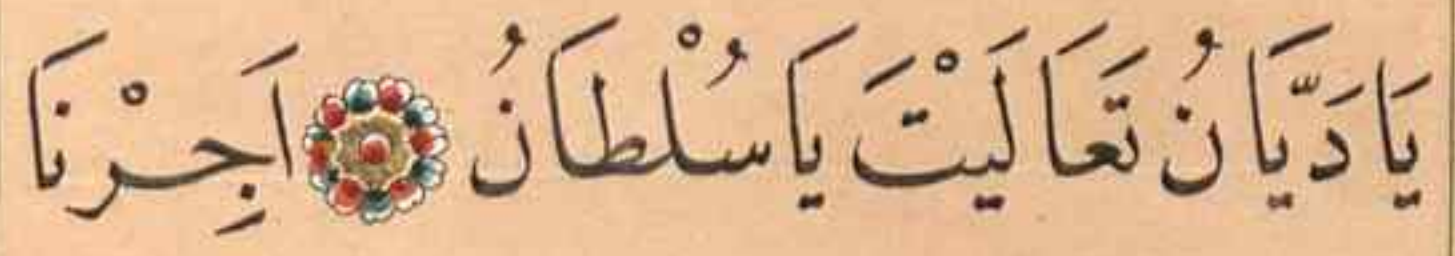 يَا دَيَّانُ تَعَالَيْتَ يَا سُلْطَانُ اَجِرْنَا